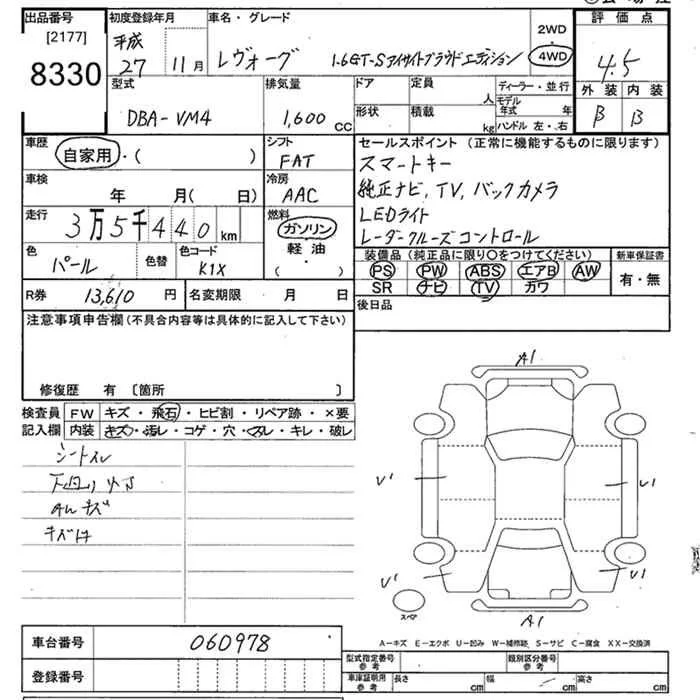 出品番号 初度登録年月 車名・グレード 2WD 評価点
[2177] 平成 4WD
8330 27 11月 レヴォーグ 1.6GT-Sアイサイトプラウドエディション 4.5
型式 排気量 ドア 定員 ディーラー・並行 外装 内装
人 モデル年式 年
DBA-VM4 1,600cc 形状 積載 kg ハンドル 左・右 B B
車歴 シフト セールスポイント (正常に機能するものに限ります)
自家用・( ) FAT スマートキー
車検 冷房 純正ナビ, TV, バックカメラ
年 月( 日) AAC LEDライト
走行 燃料 レーダークルーズコントロール
3万5千440km ガソリン
軽油・
( )
色 色替 色コード 装備品 (純正品に限り○をつけてください) 新車保証書
パール K1X PS PW ABS エアB AW 有・無
SR ナビ TV カワ
R券 13,610円 名変期限 月 日 後日品
注意事項申告欄 (不具合内容等は具体的に記入して下さい)
修復歴 有 〔箇所 〕
検査員 FW キズ・飛石・ヒビ割・リペア跡・×要
記入欄 内装 キズ・汚レ・コゲ・穴・スレ・キレ・破レ
シートスレ
キズ
A1
U1
U1
U1
U1
スペア
A1
A-キズ E-エクボ U-凹み W-補修跡 S-サビ C-腐食 XX-交換済
車台番号 060978
型式指定番号 参考 類別区分番号 参考
登録番号 車庫証明用 参考 長さ cm 幅 cm 高さ cm